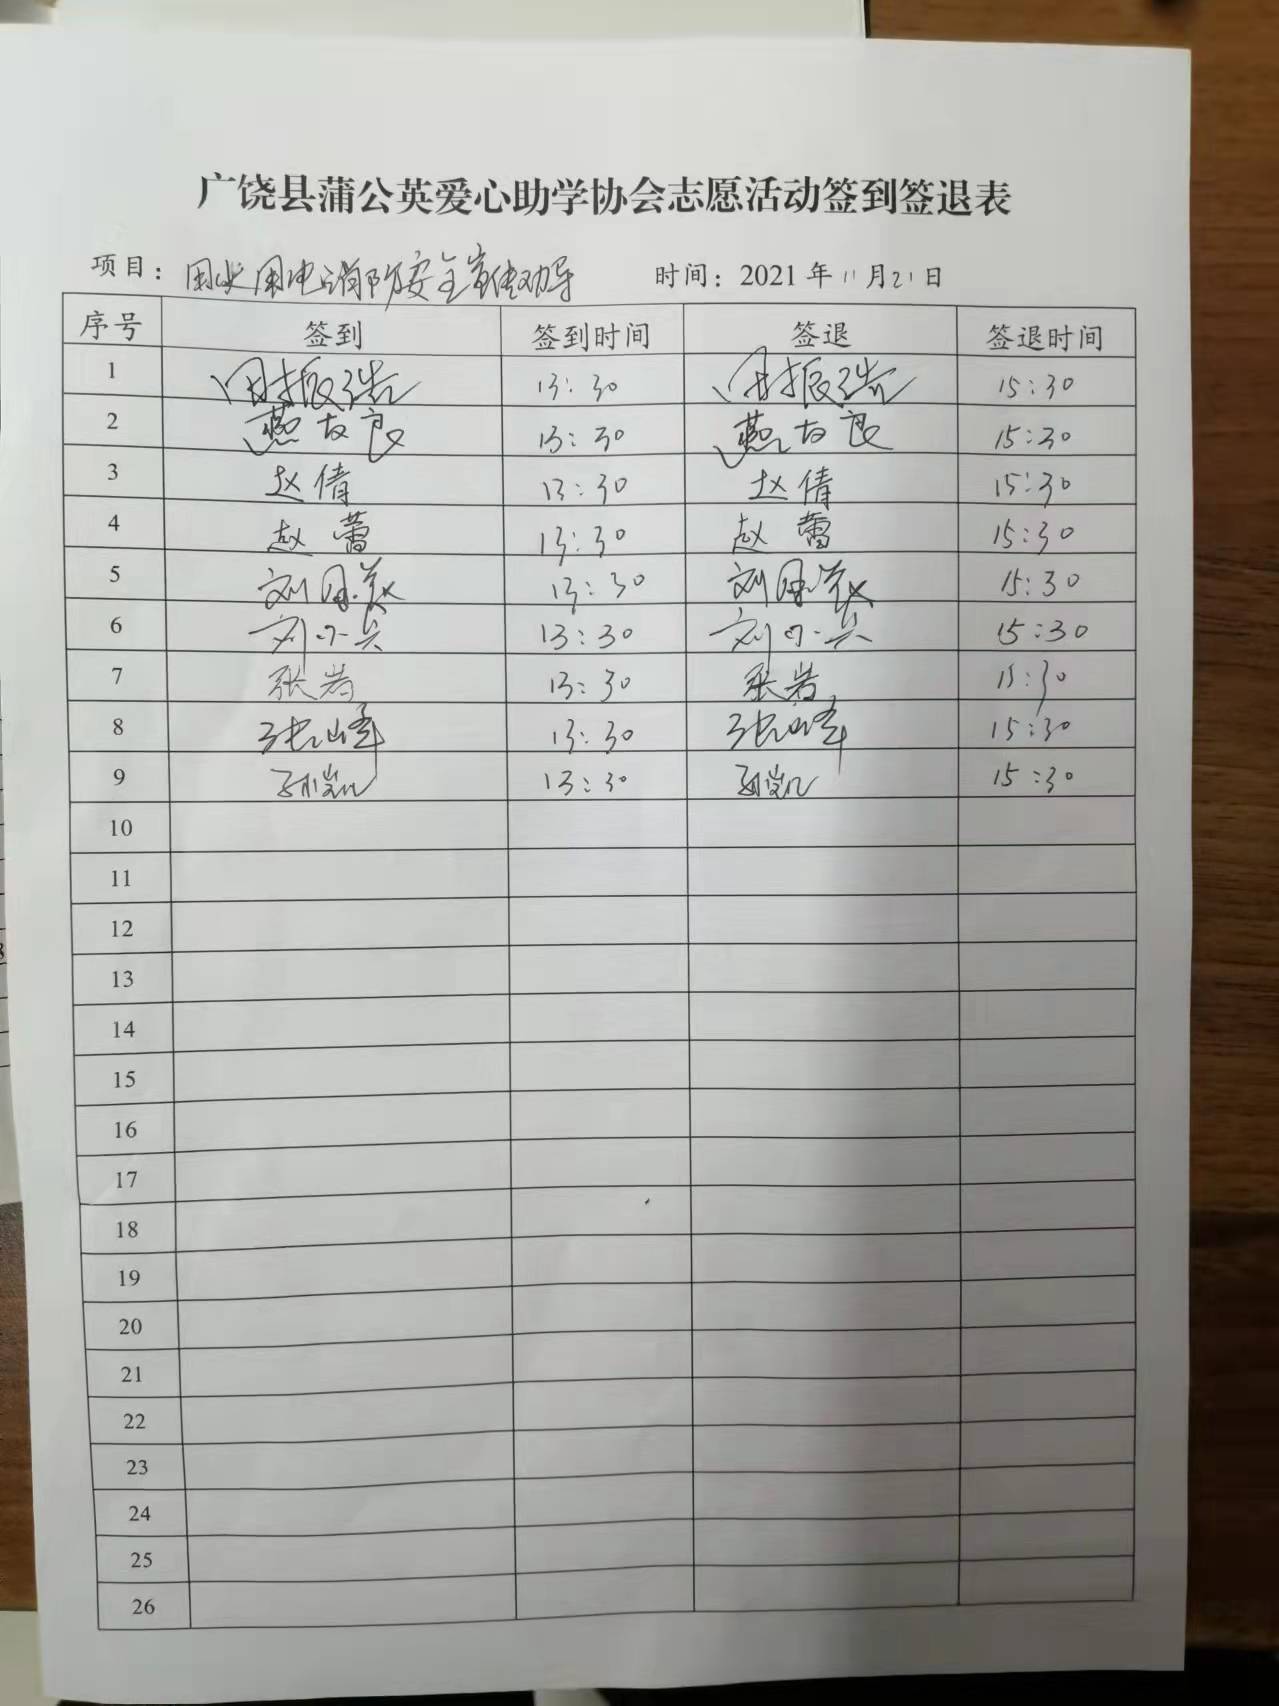 广饶县蒲公英爱心助学协会志愿活动签到签退表
项目：用火用电消防安全宣传劝导 时间：2021年11月21日
序号 签到 签到时间 签退 签退时间
1 周振浩 13:30 周振浩 15:30
2 燕友良 13:30 燕友良 15:30
3 赵倩 13:30 赵倩 15:30
4 赵蕾 13:30 赵蕾 15:30
5 刘 13:30 刘 15:30
6 刘小兵 13:30 刘小兵 15:30
7 张岩 13:30 张岩 15:30
8 张峰 13:30 张峰 15:30
9 孙凯 13:30 孙凯 15:30
10
11
12
13
14
15
16
17
18
19
20
21
22
23
24
25
26